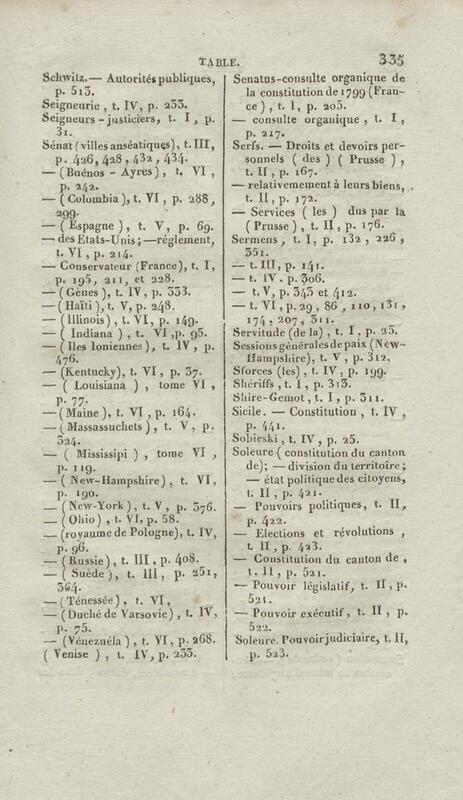 TABLE. 335
Schwitz.— Autorités publiques,
p. 513.
Seigneurie, t. IV, p. 233.
Seigneurs-justiciers, t. I, p.
31.
Sénat (villes anséatiques), t. III,
p. 426, 428, 432, 434.
— (Buénos - Ayres), t. VI,
p. 242.
— (Colombia), t. VI, p. 288,
299.
— (Espagne), t. V, p. 69.
— des Etats-Unis; — réglement,
t. VI, p. 214.
— Conservateur (France), t. I,
p. 195, 211, et 228.
— (Gènes), t. IV, p. 333.
— (Haïti), t. V, p. 248.
— (Illinois), t. VI, p. 149.
— (Indiana), t. VI, p. 95.
— (Iles Ioniennes), t. IV, p.
476.
— (Kentucky), t. VI, p. 37.
— (Louisiana), tome VI,
p. 77.
— (Maine), t. VI, p. 164.
— (Massassuchets), t. V, p.
324.
— (Mississipi), tome VI,
p. 119.
— (New-Hampshire), t. VI,
p. 190.
— (New-York), t. V, p. 376.
— (Ohio), t. VI, p. 58.
— (royaume de Pologne), t. IV,
p. 96.
— (Russie), t. III, p. 408.
— (Suède), t. III, p. 251,
364.
— (Ténessée), t. VI,
— (Duché de Varsovie), t. IV,
p. 75.
— (Vénezuéla), t. VI, p. 268.
(Venise), t. IV, p. 233.
Senatus-consulte organique de
la constitution de 1799 (Fran-
ce), t. I, p. 205.
— consulte organique, t. I,
p. 217.
Serfs. — Droits et devoirs per-
sonnels (des) (Prusse),
t. II, p. 167.
— relativemement à leurs biens,
t. II, p. 172.
— Services (les) dus par la
(Prusse), t. II, p. 176.
Sermens, t. I, p. 132, 226,
351.
— t. III, p. 141.
— t. IV. p. 306.
— t. V, p. 343 et 412.
— t. VI, p. 29, 86, 110, 131,
174, 207, 311.
Servitude (de la), t. I, p. 25.
Sessions générales de paix (New-
Hampshire), t. V, p. 312.
Sforces (les), t. IV, p. 199.
Shériffs, t. I, p. 313.
Shire-Gemot, t. I, p. 311.
Sicile. — Constitution, t. IV,
p. 441.
Sobieski, t. IV, p. 25.
Soleure (constitution du canton
de); — division du territoire;
— état politique des citoyens,
t. II, p. 421.
— Pouvoirs politiques, t. II,
p. 422.
— Elections et révolutions,
t. II, p. 423.
— Constitution du canton de,
t. II, p. 521.
— Pouvoir législatif, t. II, p.
521.
— Pouvoir exécutif, t. II, p.
522.
Soleure. Pouvoir judiciaire, t. II,
p. 523.